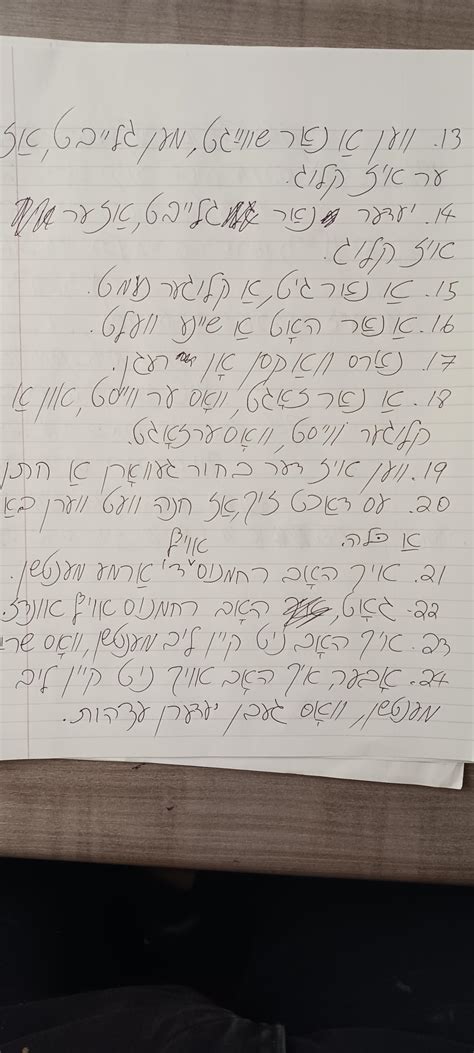 13. ווען אַ נאַר שווײַגט, מען גלייבט, אַז
ער איז קלוג.
14. יעדער נאַר גלייבט, אַז ער
איז קלוג.
15. אַ נאַר גיט, אַ קלוגער נעמט.
16. אַ נאַר האָט אַ שיינע וועלט.
17. נאַרס וואַקסן אָן רעגן.
18. אַ נאַר זאָגט, וואָס ער ווייסט, און אַ
קלוגער ווייסט, וואָס ער זאָגט.
19. ווען איז דער בחור געוואָרן אַ חתן
20. עס דאַכט זיך, אַז חנה וועט ווערן באַ
אַ כּלה. אויף
21. איך האָב רחמנות אַרמע מענטשן.
22. גאָט, האָב רחמנות אויף אונדז.
23. איך האָב ניט קיין ליב מענטשן, וואָס
24. אָבער, איך האָב אויך ניט קיין ליב
מענטשן, וואָס געבן יעדערן עצהות.